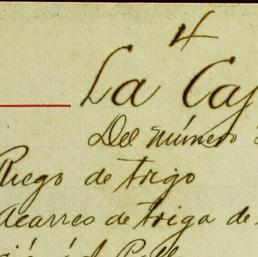 4
La Caj
Del número
Riego de trigo
Acarreo de triga de